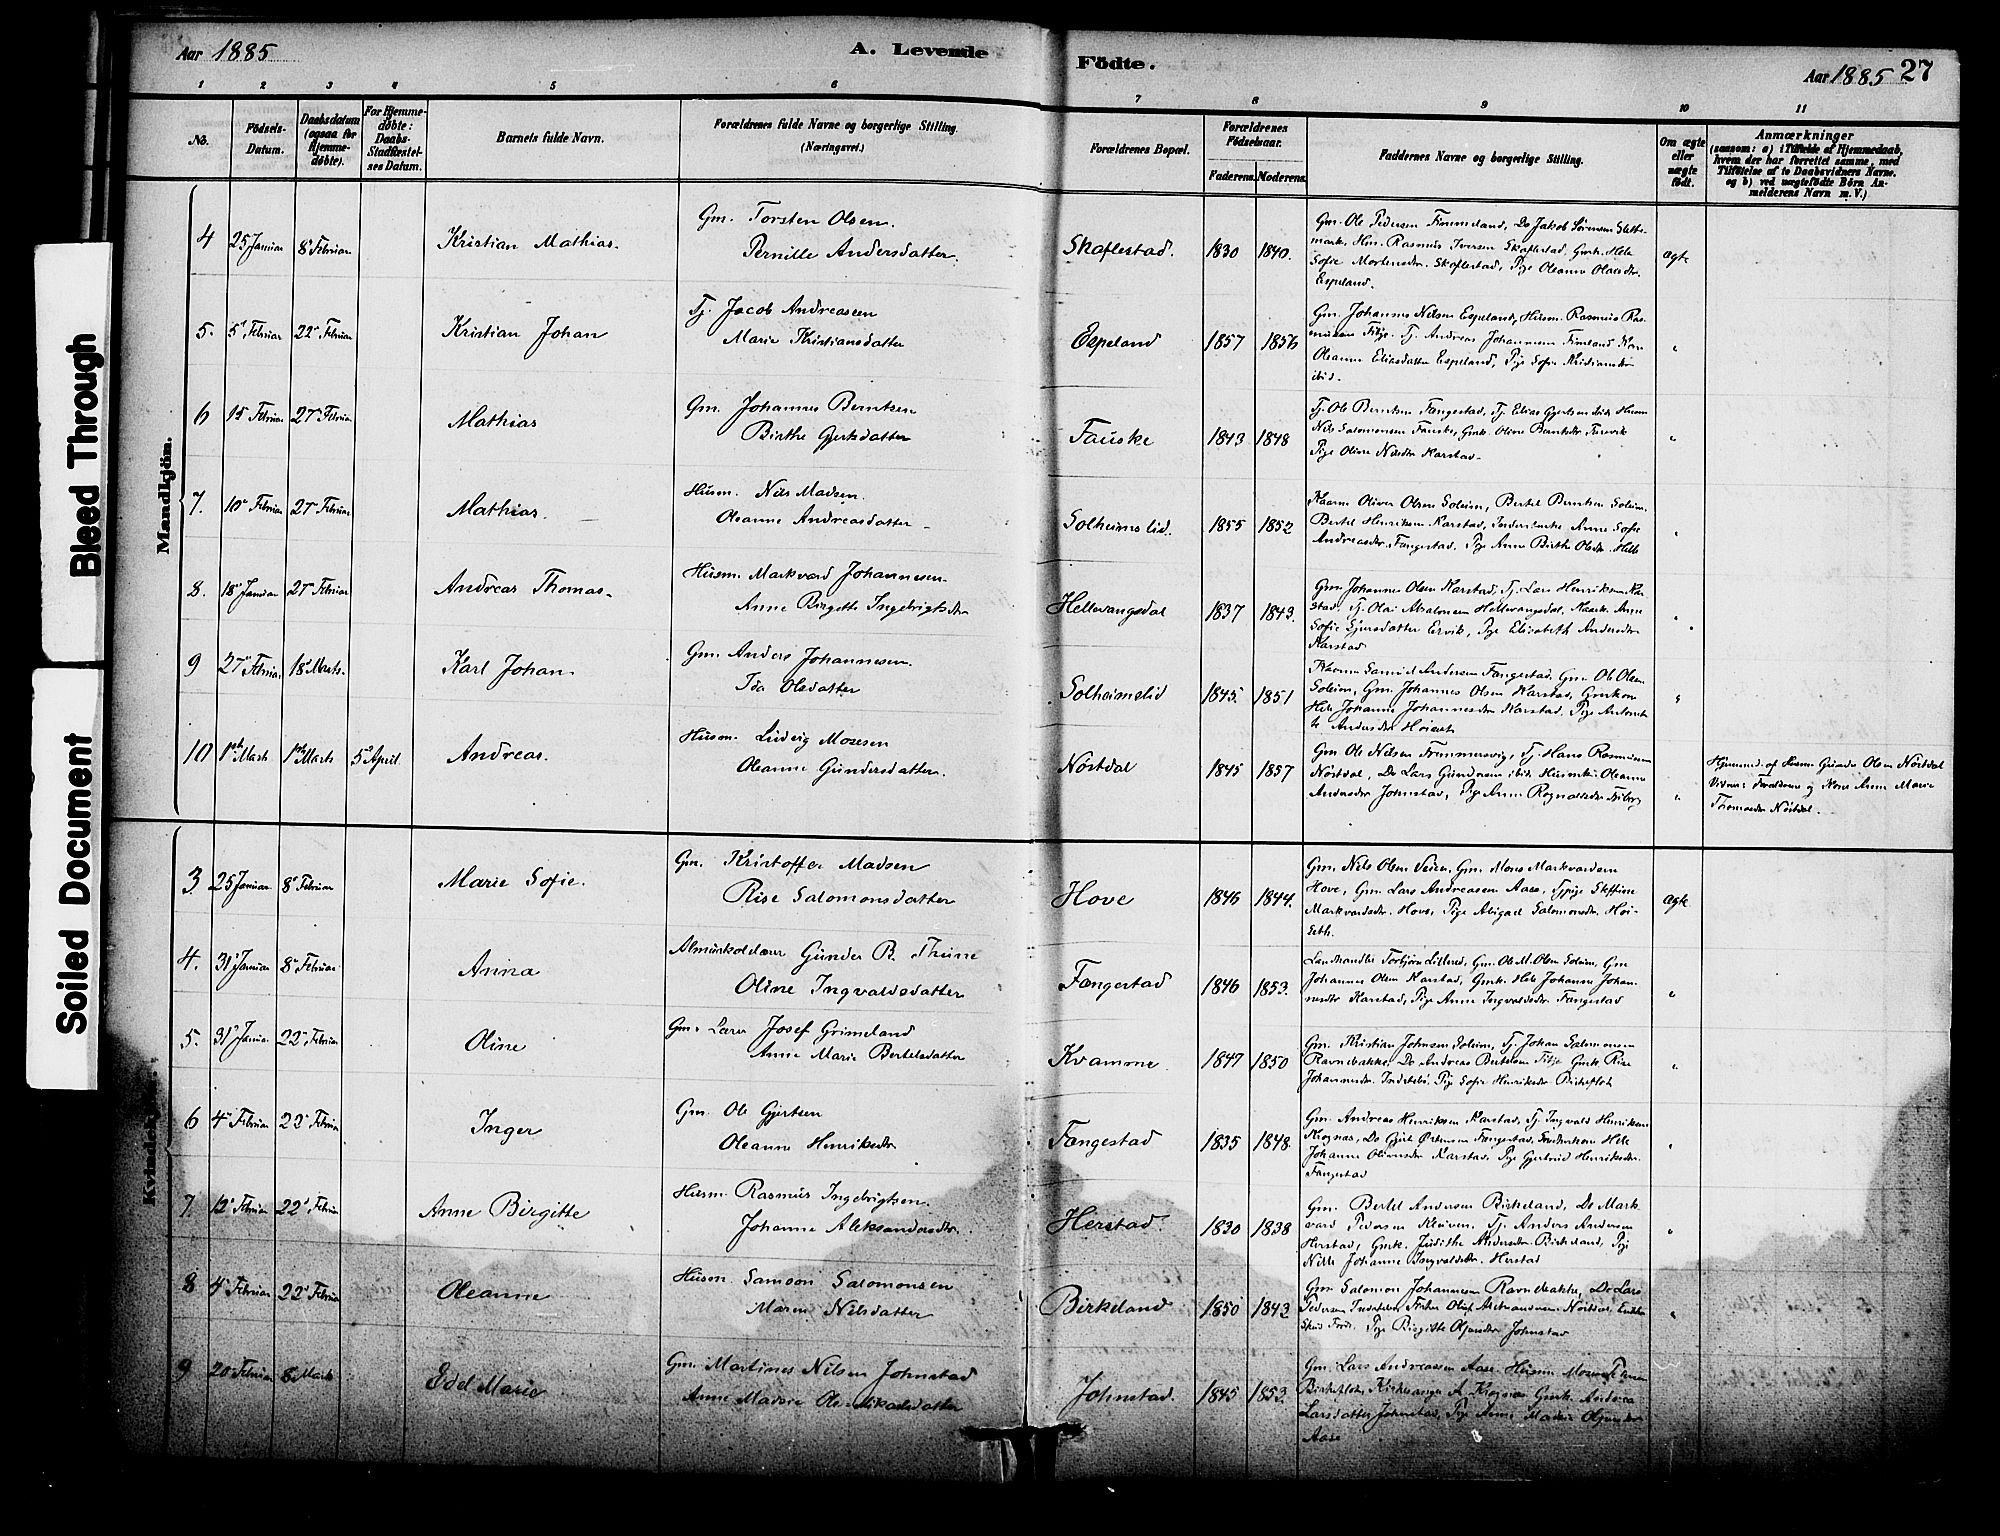 Aar 1885
A. Levende
Födte.
Aar 1885
27
1 2 3 4 5 6 7 8 9 10 11
No.
Födsels-Datum.
Daabsdatum (ogsaa for Hjemmedøbte).
For Hjemmedøbte: Daabs-Stadfæstelses Datum.
Barnets fulde Navn.
Forældrenes fulde Navne og borgerlige Stilling.
(Næringsvei.)
Forældrenes Bopæl.
Forældrenes Födselsaar.
Faderens. Moderens.
Faddernes Navne og borgerlige Stilling.
Om ægte eller uægte födt.
Anmærkninger
(saasom: a) i Tilfælde af Hjemmedaab, hvem der har forrettet samme, med Tilföielse af to Daabsvidners Navne. og b) ved uægtefödte Börn Anmelderens Navn m. V.)
Mandkjön.
4 25 Januar 8 Februar Kristian Mathias. Gm. Torsten Olsen
Pernille Andersdatter. Skaflestad. 1830 1840. ægte
Gm. Ole Pedersen Fimmeland, Do Jakob Sörensen Slette-
mark, Hm. Rasmus Iversen Skaflestad, Gmk. Hele
Sofie Mortensdtr. Skaflestad, Pige Oleanna Olaisdtr.
Espeland.
5. 5 Februar 22 Februar Kristian Johan Tj. Jacob Andreasen
Marie Kristiansdatter Espeland 1857 1856 "
Gm. Johannes Nilsen Espeland, Husm. Rasmus Ras-
Oleanne Eliasdatter Espeland, Pige Sofie Kristiansdtr
ibid.
6 15 Februar 27 Februar Mathias Gm. Johannes Berntsen
Birthe Gjertsdatter Fauske 1843 1848 "
Tj. Ole Berntsen Fangestad, Tj. Elias Gjertsen ibid. Husm
Nils Salomonsen Fauske, Gmk. Oline Berntsdtr
Pige Oline Nilsdtr Karstad.
7. 10 Februar 27 Februar Mathias. Husm. Nils Madsen.
Oleanne Andreasdatter Solheimslid. 1855 1852 "
Oliver Olsen Soleim, Bertel Berntsen Soleim,
Bertel Henriksen Karstad, Anne Sofie
Andreasdtr. Fangestad, Pige Anne Birthe Olsdtr. Helle
8. 18 Januar 27 Februar Andreas Thomas. Husm. Markvard Johannesen.
Anne Birgitte Ingebrigtsdtr Hellevangsdal 1837 1843. "
Gm. Johannes Olsen Karstad, Tj. Lars Henriksen Kar-
stad, Tj. Olai Absalonsen Hellevangsdal, Anne
Sofie Sjursdatter Ervik, Pige Elisabeth Andersdtr
Karstad
9 27 Februar 18 Marts. Karl Johan. Gm. Anders Johannesen.
Ida Olsdatter Solheimslid 1845. 1851 "
Samuel Andersen Fangestad, Gm. Ole Olsen
Soleim, Gm. Johannes Olsen Karstad, Gmkone
Hele Johanne Johannesdtr Karstad, Pige Antonet-
te Andersdtr
10 1ste Marts 1ste Marts 5 April. Andreas. Husm. Ludvig Mosesen
Oleanne Gundersdatter. Nöstdal 1845 1857 "
Gm. Ole Nilsen Frummersvig, Tj. Hans Rasmussen
Nöstdal, Do Lars Gundersen ibid. Oleanne
Andersdtr Johnstad, Pige Anne Rognaldsdtr
Hjemmed. af Husm Gunder Olsen Nöstdal
Vidner: Forældrene og Kone Anne Marie
Thomasdtr Nöstdal.
Kvindekjön.
3 25 Januar 8 Februar Marie Sofie. Gm. Kristoffer Madsen
Rise Salomonsdatter Hove 1846 1844. ægte
Gm. Nils Olsen Veien, Gm. Mons Markvardsen
Hove, Gm. Lars Andreasen Aase, Tjpige
Markvardsdtr. Hove, Pige Abigael Salomonsdtr,
4. 31 Januar 8 Februar Anna Gunder B. Thune
Oline Ingvaldsdatter Fangestad 1846 1853. "
Landhandler Torbjörn Lillered, Gm. Ole M. Olsen Soleim, Gm
Johannes Olsen Karstad, Gmk. Hele Johanne Johan-
nesdtr Karstad, Pige Anne Ingvaldsdtr Fangestad
5. 31 Januar 22 Februar Oline Gm. Lars Josef Grimeland
Anne Marie Bertelsdatter Kvamme 1847 1850 "
Gm. Kristian Johnsen Soleim, Tj. Johan Salomonsen
Ravnebakke, Do Andreas Bertelsen Gmk Rise
Johannesdtr. Indrebö, Pige Sofie Henriksdtr. Birkeflot
6 4 Februar 22 Februar Inger Gm. Ole Gjertsen
Oleanne Henriksdtr Fangestad 1835 1848. "
Gm. Andreas Henriksen Karstad, Tj. Ingvald Henriksen
Do Gjert Fangestad, Hele
Johanne Oliversdtr Karstad, Pige Gjertrud Henriksdtr.
Fangestad
7. 12 Februar 22 Februar Anne Birgitte Husm. Rasmus Ingebrigtsen.
Johanne Aleksandersdtr. Herstad. 1830 1838 "
Gm. Bertel Andersen Birkeland, Do Mark-
vard Pedersen Kleiven, Tj. Anders Andersen
Herstad, Gmk. Judithe Andersdtr. Birkeland, Pige
Nille Johanne Ingvaldsdtr. Herstad
8 4 Februar 22 Februar Oleanne Husm. Samson Salomonsen
Maren Nilsdatter Birkeland 1850 1843 "
Gm. Salomon Johannesen Ravnebakke, Do Lars
Pedersen Olaf Aleksandersen Nöstdal,
Pige Birgitte Johnstad
9 20 Februar 8 Marts Edel Marie Gm. Martines Nilsen Johnstad
Anne Madore Ole-Mikaelsdatter Johnstad. 1845 1853.
Gm. Lars Andreassen Aase, Husm
Birkeflot, Kirkesanger A. Gmk. Andrea
Larsdatter Johnstad, Pige Anne
Aase
Bleed Through
Soiled Document